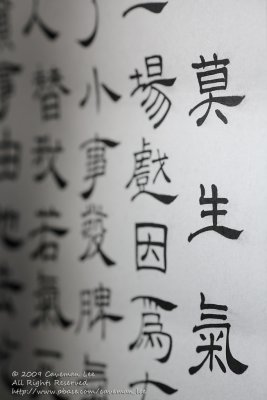 莫生氣
一場戲因為
了小事發脾氣
人替我若氣
事由他去
© 2009 Caveman Lee
All Rights Reserved
http://www.pbase.com/caveman_lee